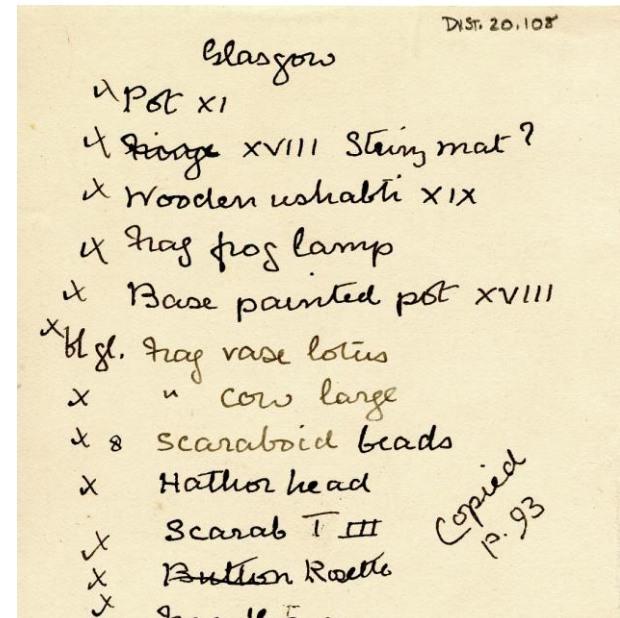 DIST. 20.108
Glasgow
x Pot XI
x Fringe XVIII String mat?
x Wooden ushabti XIX
x Frag frog lamp
x Base painted pot XVIII
x bl gl. Frag vase lotus
x " cow large
x 8 Scaraboid beads
x Hathor head
x Scarab T III
x Button Rosette
Copied
p. 93
x